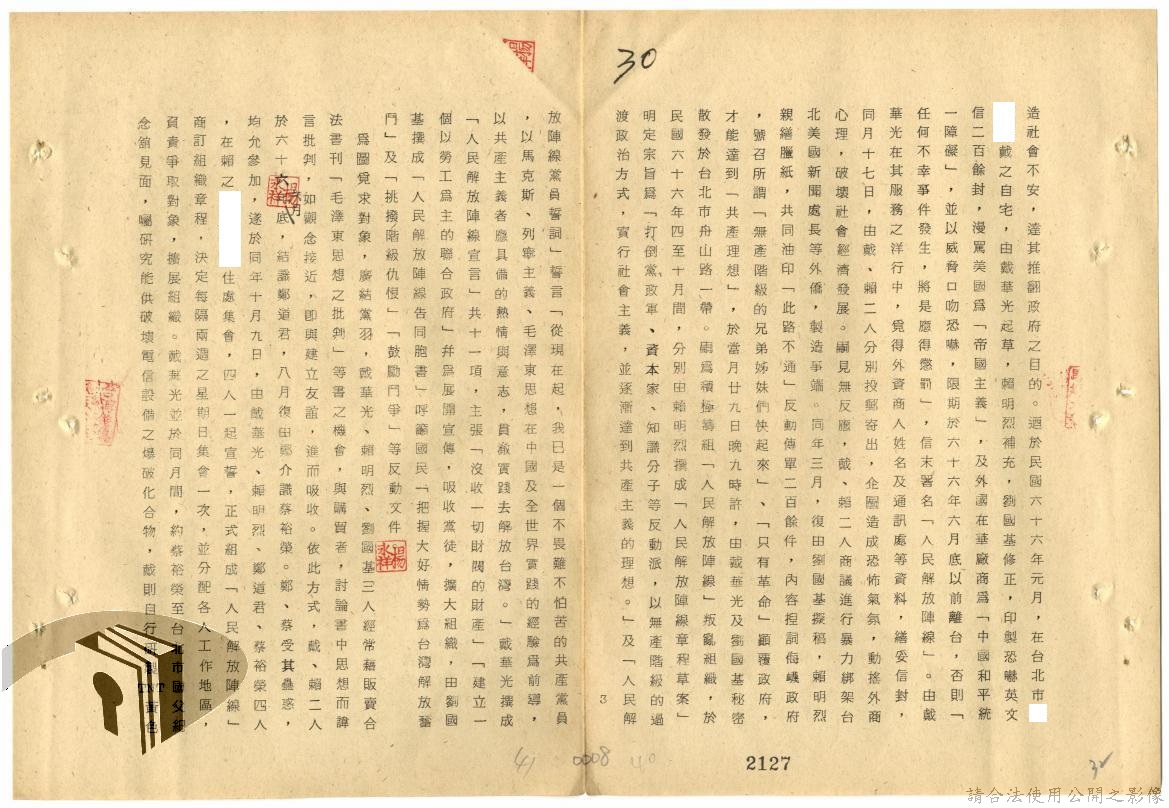 30
造社會不安，達其推翻政府之目的。迺於民國六十六年元月，在台北市
戴之自宅，由戴華光起草，賴明烈補充，劉國基修正，印製恐嚇英文
信二百餘封，漫罵美國爲「帝國主義」，及外國在華廠商爲「中國和平統
一障礙」，並以威脅口吻恐嚇，限期於六十六年六月底以前離台，否則「
任何不幸事件發生，將是應得懲罰」，信末署名「人民解放陣線」。由戴
華光在其服務之洋行中，竟得外資商人姓名及通訊處等資料，繕妥信封，
同月十七日，由戴、賴二人分別投郵寄出，企圖造成恐怖氣氛，動搖外商
心理，破壞社會經濟發展。嗣見無反應，戴、賴二人商議進行暴力綁架台
北美國新聞處長等外僑，製造爭端。同年三月，復由劉國基擬稿，賴明烈
親繕臘紙，共同油印「此路不通」反動傳單二百餘件，內容捏詞侮衊政府
，號召所謂「無產階級的兄弟姊妹們快起來」、「只有革命」顚覆政府，
才能達到「共產理想」，於當月廿九日晚九時許，由戴華光及劉國基秘密
散發於台北市舟山路一帶。嗣爲積極籌組「人民解放陣線」叛亂組織，於
民國六十六年四至十月間，分別由賴明烈撰成「人民解放陣線章程草案」
明定宗旨爲「打倒黨政軍、資本家、知識分子等反動派，以無產階級的過
渡政治方式，實行社會主義，並逐漸達到共產主義的理想。」及「人民解
3
放陣線黨員誓詞」誓言「從現在起，我已是一個不畏難不怕苦的共產黨員
，以馬克斯、列寧主義、毛澤東思想在中國及全世界實踐的經驗爲前導，
以共產主義者應具備的熱情與意志，貫徹實踐去解放台灣。」戴華光撰成
「人民解放陣線宣言」共十一項，主張「沒收一切財閥的財產」「建立一
個以勞工爲主的聯合政府」幷爲展開宣傳，吸收黨徒，擴大組織，由劉國
基撰成「人民解放陣線告同胞書」呼籲國民「把握大好情勢爲台灣解放奮
鬥」及「挑撥階級仇恨」「鼓勵鬥爭」等反動文件
爲圖覓求對象，廣結黨羽，戴華光、賴明烈、劉國基三人經常藉販賣合
法書刊「毛澤東思想之批判」等書之機會，與購買者，討論書中思想而諱
言批判，如觀念接近，卽與建立友誼，進而吸收。依此方式，戴、賴二人
於六十六年底，結識鄭道君，八月復由鄭介識蔡裕榮。鄭、蔡受其蠱惑，
均允參加，遂於同年十月九日，由戴華光、賴明烈、鄭道君、蔡裕榮四人
，在賴之
住處集會，四人一起宣誓，正式組成「人民解放陣線」
商訂組織章程，決定每隔兩週之星期日集會一次，並分配各人工作地區，
負責爭取對象，擴展組織。戴華光並於同月間，約蔡裕榮至台北市國父紀
念舘見面，囑研究能供破壞電信設備之爆破化合物，戴則自行研製TNT黃色
41 0008 40
2127
請合法使用公開之影像